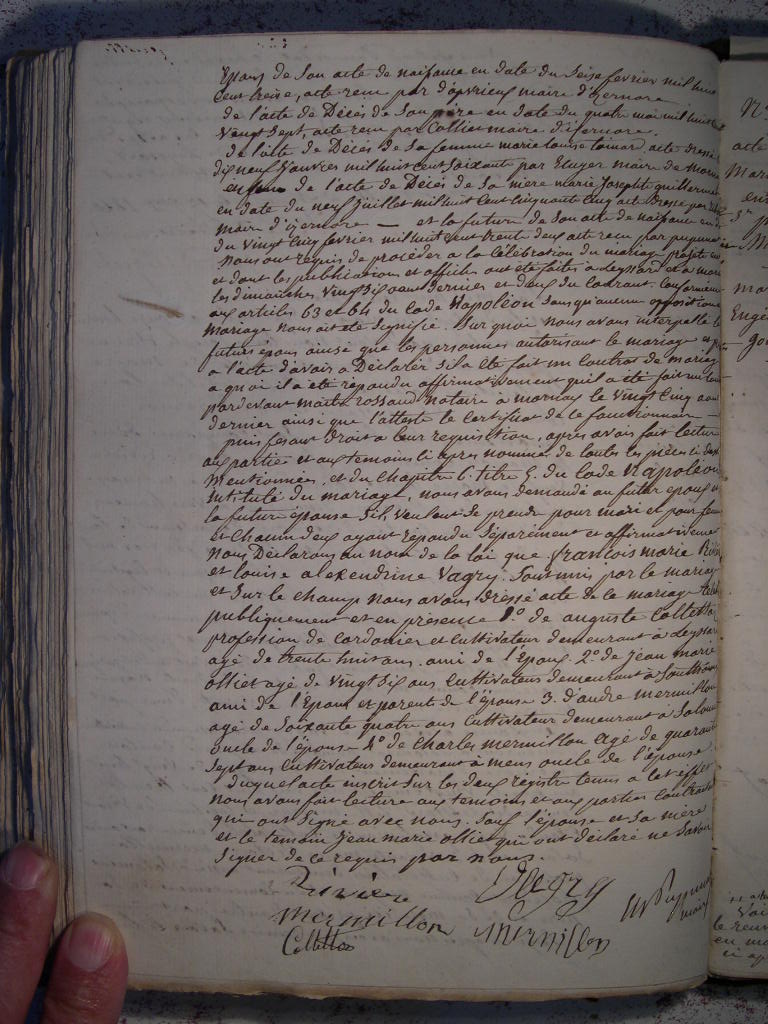 Epoux de Son acte de naissance en date du Seise fevrier mil huit
cent treise, acte recu par d'apvrieux maire d'izernore
de l'acte de Décès de Son père en date du quatre mai mil huit
vingt Sept, acte recu par Collier maire d'izernore.
de l'acte de Décès de Sa femme marie louise tomard, acte
dix neuf Janvier mil huit cent Soixante par Etuyer maire de
enfin de l'acte de Décès de Sa mère marie Josephte
en date du neuf Juillet mil huit cent cinquante cinq acte Dressé par
maire d'izernore — et la future de Son acte de naissance en
du vingt cinq fevrier mil huit cent trente deux acte recu par
nous ont requis de procéder a la Célébration du mariage projeté
et dont les publications et affiches ont été faites a Leyssard et a
les dimanches vingt Six aout dernier et deux du courant. Conformément
aux articles 63 et 64 du Code Napoléon Sans qu'aucune opposition
mariage nous ait été Signifié. Sur quoi nous avons interpellé
futurs époux ainsi que les personnes autorisant le mariage
a l'acte d'avoir a Déclarer S'il a été fait un Contrat de mariage
a quoi il a été répondu affirmativement qu'il a été fait un
pardevant maitre rossand notaire a mornay le vingt cinq aout
dernier ainsi que l'atteste le certificat de le fonctionnaire —
puis fesant Droit a leur requisition, après avoir fait lecture
aux parties et aux temoins ci après nommés de toutes les pièces ci
mentionnées, et du chapitre 6. titre 5. du Code Napoléon
intitulé du mariage, nous avons demandé au futur epoux
la future épouse S'ils veulent Se prendre pour mari et pour
et chacun d'eux ayant répondu Séparément et affirmativement
nous Déclarons au nom de la loi que françois marie
et louise alexendrine Vagry. Sont unis par le mariage
et Sur le champ nous avons Dressé acte de la mariage
publiquement et en présence 1.° de auguste Collettaz
profession de cordonier et cultivateur demeurant à
agé de trente huit ans. ami de l'Epoux 2.° de Jean marie
ollier agé de vingt Six ans cultivateur demeurant à
ami de l'Epoux et parent de l'épouse 3. d'andre mermillon
agé de Soixante quatre ans cultivateur demeurant à
oncle de l'épouse 4.° de Charles mermillon agé de quarante
Sept ans cultivateur demeurant à mens oncle de l'épouse
duquel acte inscrit Sur les deux registre tenus a cet effet
nous avons fait lecture aux temoins et aux parties
qui ont Signé avec nous. Sauf l'épouse et Sa mère
et le temoin Jean marie ollier qui ont déclaré ne Savoir
Signer de ce requis par nous.
Rivière Vagry
mermillon mermillon
Collettaz maire